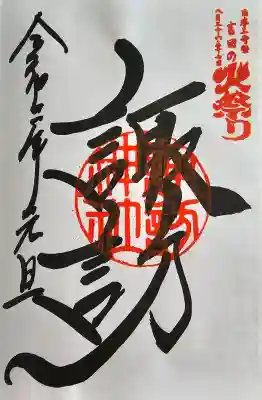 日本三奇祭
吉田の火祭り
八月二十六・二十七日
諏訪
諏訪神社
令和六年元旦